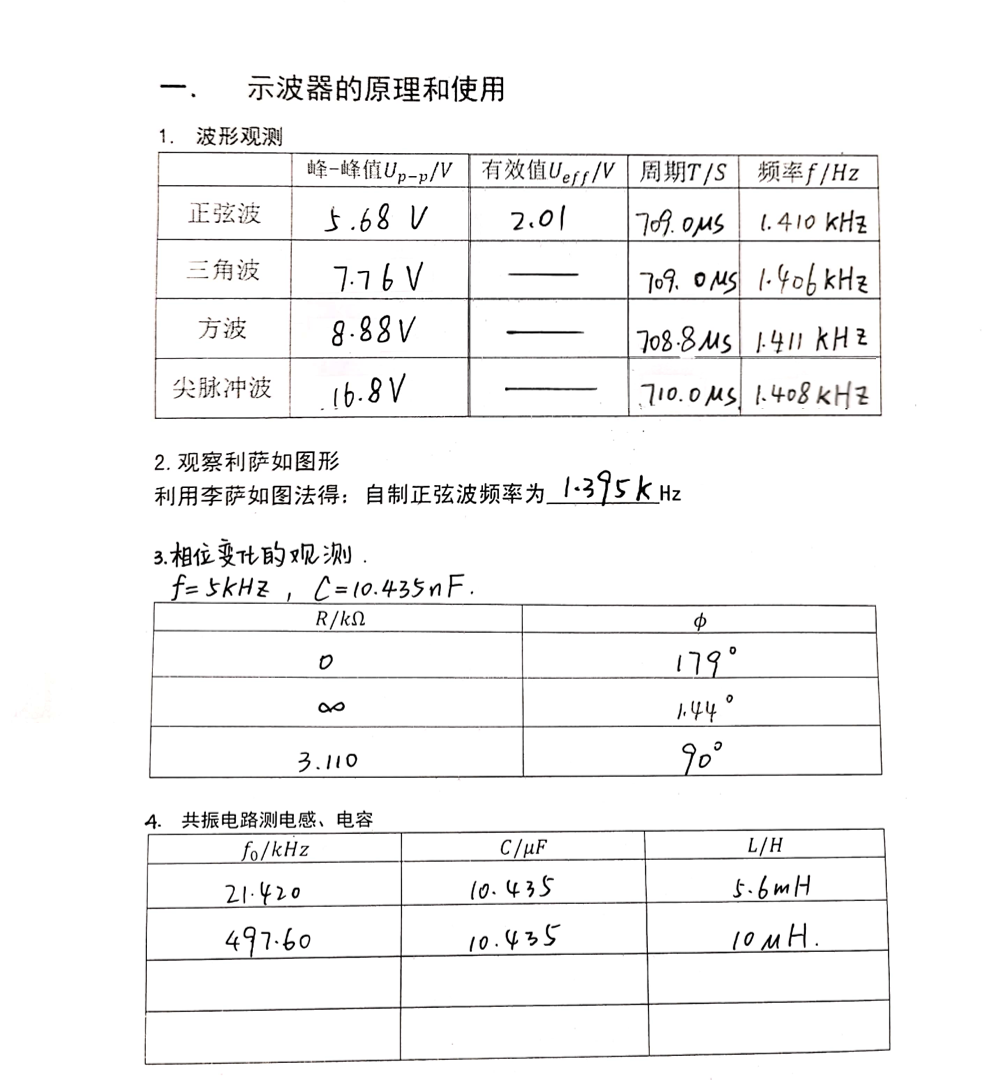 一. 示波器的原理和使用
1. 波形观测
峰-峰值U_{p-p}/V 有效值U_{eff}/V 周期T/S 频率f/Hz
正弦波 5.68 V 2.01 709.0μs 1.410 kHz
三角波 7.76 V —— 709.0μs 1.406 kHz
方波 8.88V —— 708.8μs 1.411 kHz
尖脉冲波 16.8V —— 710.0μs 1.408 kHz
2. 观察利萨如图形
利用李萨如图法得：自制正弦波频率为 1.395k Hz
3.相位变化的观测.
f=5kHz , C=10.435nF.
R/kΩ ϕ
0 179°
∞ 1.44°
3.110 90°
4. 共振电路测电感、电容
f₀/kHz C/μF L/H
21.420 10.435 5.6mH
497.60 10.435 10μH.